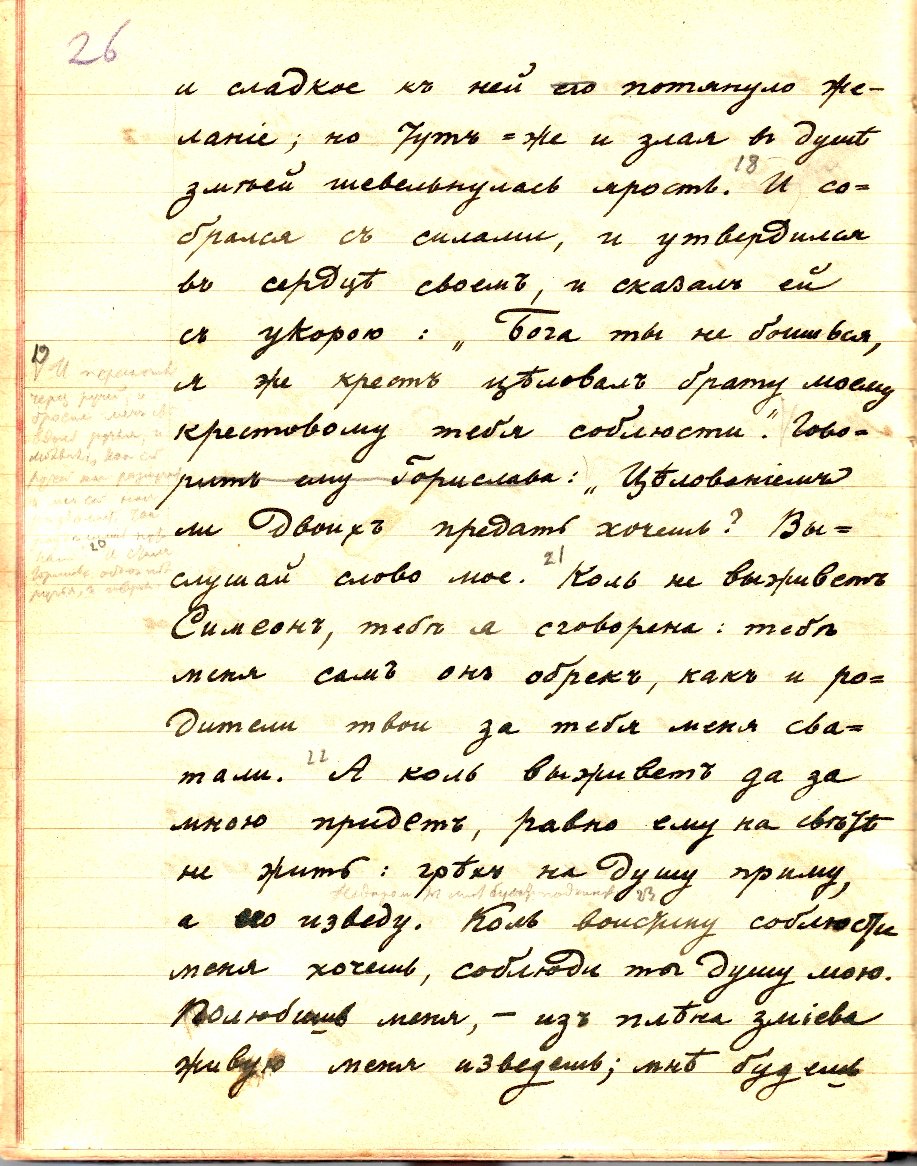 26
и сладкое къ ней его потянуло же-
ланіе; но тутъ=же и злая въ душѣ
змѣей шевельнулась ярость. 18 И со=
брался съ силами, и утвердился
въ сердцѣ своемъ, и сказалъ ей
съ укорою: „Бога ты не боишься,
19
я же крестъ цѣловалъ брату моему
крестовому тебя соблюсти". Гово-
ритъ ему Горислава: „Цѣлованіемъ
ли двоихъ предать хочешь? Вы=
20
слушай слово мое. 21 Коль не выживетъ
Симеонъ, тебѣ я сговорена: тебѣ
меня самъ онъ обрекъ, какъ и ро=
дители твои за тебя меня сва=
тали. 22 А коль выживетъ да за
мною придетъ, равно ему на свѣтѣ
не жить: грѣхъ на душу приму,
23
а его изведу. Коль воистину соблюсти
меня хочешь, соблюди ты душу мою.
Полюбишь меня, – изъ плѣна зміева
живую меня изведешь; мнѣ будешь